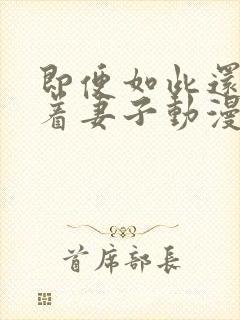 即便如此還
着妻子動漫
首席部長